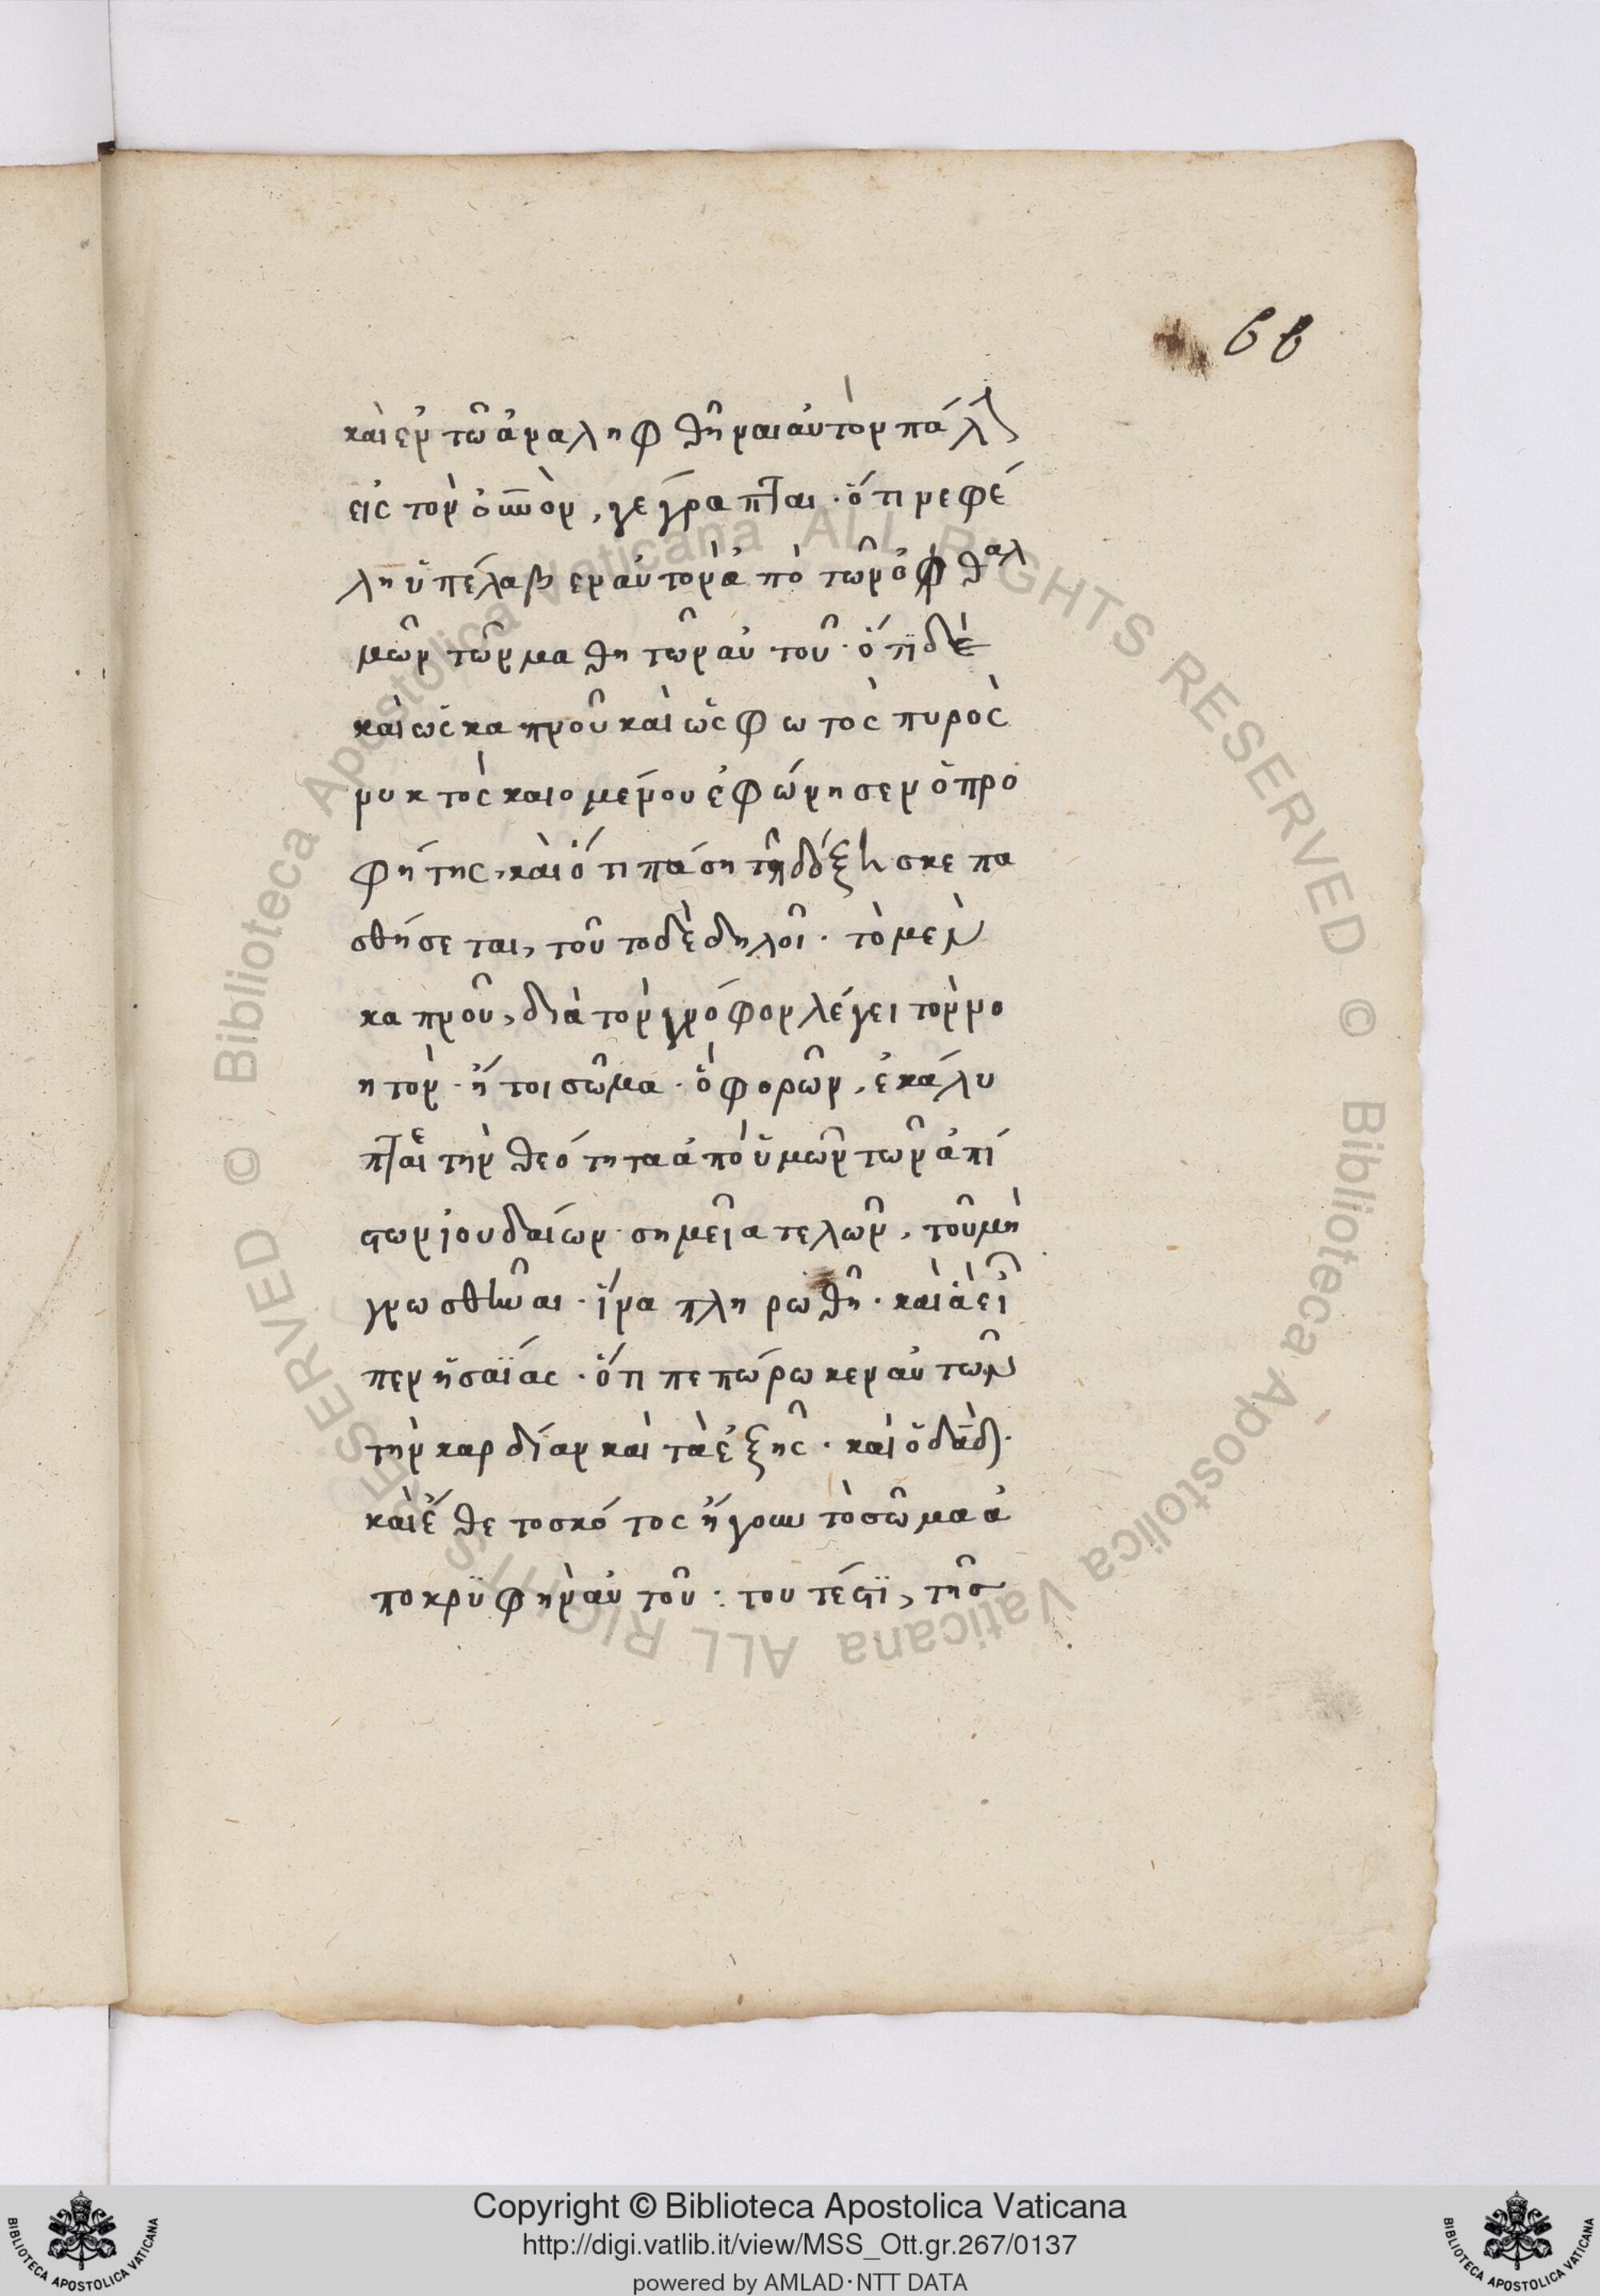 66
καὶ ἐν τῶ ἀναληφθῆναι αὐτὸν πάλ
εἰς τὸν οὐνὸν, γέγραπται· ὅτι νεφέ
λη ὑπέλαβεν αὐτὸν ἀπὸ τῶν ὀφθαλ
μῶν τῶν μαθητῶν αὐτοῦ· ὅτϊ δὲ
καὶ ὡς καπνοῦ καὶ ὡς φωτὸς πυρὸς
νυκτὸς καιομένου ἐφώνησεν ὁ προ
φήτης, καὶ ὅτι πάση τῆ δόξη σκεπα
σθήσεται, τοῦτο δὲ δηλοῖ· τὸ μὲν
καπνοῦ, διὰ τὸν γνόφον λέγει τὸν νο
ητὸν· ἤτοι σῶμα· ὃ φορῶν, ἐκάλυ
πται τὴν θεότητα ἀπὸ ὑμῶν τῶν ἀπί
στων ἰουδαίων· σημεῖα τελῶν, τοῦ μὴ
γνωσθῆναι· ἵνα πληρωθῆ· καὶ ἃ εἶ
πεν ἡσαΐας· ὅτι πεπώρωκεν αὐτῶν
τὴν καρδίαν καὶ τὰ ἑξῆς· καὶ ὁ δᾱδ·
καὶ ἔθετο σκότος ἤγουν τὸ σῶμα ἀ
ποκρϋφὴν αὐτοῦ: τουτέστϊ, τῆσ
Copyright © Biblioteca Apostolica Vaticana
http://digi.vatlib.it/view/MSS_Ott.gr.267/0137
powered by AMLAD·NTT DATA
© Biblioteca Apostolica Vaticana ALL RIGHTS RESERVED
© Biblioteca Apostolica Vaticana ALL RIGHTS RESERVED
BIBLIOTECA APOSTOLICA VATICANA
BIBLIOTECA APOSTOLICA VATICANA